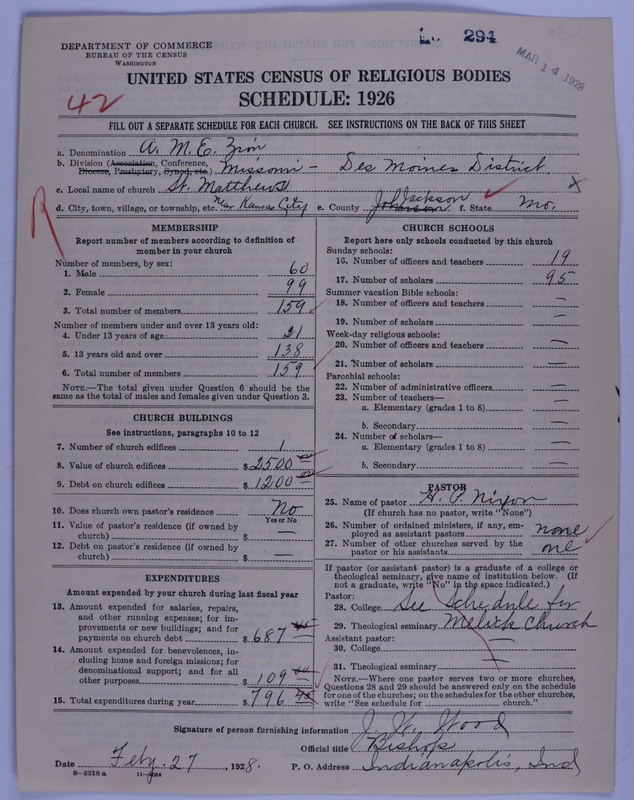 DEPARTMENT OF COMMERCE
BUREAU OF THE CENSUS
WASHINGTON
294
MAR 14 1928
UNITED STATES CENSUS OF RELIGIOUS BODIES
SCHEDULE: 1926
42
FILL OUT A SEPARATE SCHEDULE FOR EACH CHURCH. SEE INSTRUCTIONS ON THE BACK OF THIS SHEET
a. Denomination A. M. E. Zion
b. Division (Association, Conference, Diocese, Presbytery, Synod, etc.) Missouri - Des Moines District
c. Local name of church St. Matthews
d. City, town, village, or township, etc. Near Kansas City e. County Jackson f. State Mo.
R
MEMBERSHIP
Report number of members according to definition of member in your church
Number of members, by sex:
1. Male 60
2. Female 99
3. Total number of members 159
Number of members under and over 13 years old:
4. Under 13 years of age 21
5. 13 years old and over 138
6. Total number of members 159
NOTE.—The total given under Question 6 should be the same as the total of males and females given under Question 3.
CHURCH BUILDINGS
See instructions, paragraphs 10 to 12
7. Number of church edifices 1
8. Value of church edifices $ 2500 00
9. Debt on church edifices $ 1200 00
10. Does church own pastor's residence No
Yes or No
11. Value of pastor's residence (if owned by church) $ —
12. Debt on pastor's residence (if owned by church) $ —
EXPENDITURES
Amount expended by church during last fiscal year
13. Amount expended for salaries, repairs, and other running expenses; for improvements or new buildings; and for payments on church debt $ 687
14. Amount expended for benevolences, including home and foreign missions; for denominational support; and for all other purposes $ 109
15. Total expenditures during year $ 796
CHURCH SCHOOLS
Report here only schools conducted by this church
Sunday schools:
16. Number of officers and teachers 19
17. Number of scholars 95
Summer vacation Bible schools:
18. Number of officers and teachers —
19. Number of scholars —
Week-day religious schools:
20. Number of officers and teachers —
21. Number of scholars —
Parochial schools:
22. Number of administrative officers —
23. Number of teachers—
a. Elementary (grades 1 to 8) —
b. Secondary —
24. Number of scholars—
a. Elementary (grades 1 to 8) —
b. Secondary —
PASTOR
25. Name of pastor H. P. Nixon
(If church has no pastor, write "None")
26. Number of ordained ministers, if any, employed as assistant pastors none
27. Number of other churches served by the pastor or his assistants one
If pastor (or assistant pastor) is a graduate of a college or theological seminary, give name of institution below. (If not a graduate, write "No" in the space indicated.)
Pastor:
28. College See Schedule for
29. Theological seminary Church
Assistant pastor:
30. College —
31. Theological seminary —
NOTE.—Where one pastor serves two or more churches, Questions 28 and 29 should be answered only on the schedule for one of the churches; on the schedules for the other churches, write "See schedule for church."
Signature of person furnishing information J. W. Wood
Official title Bishop
Date Feby. 27, 1928. P. O. Address Indianapolis, Ind
8—5318a